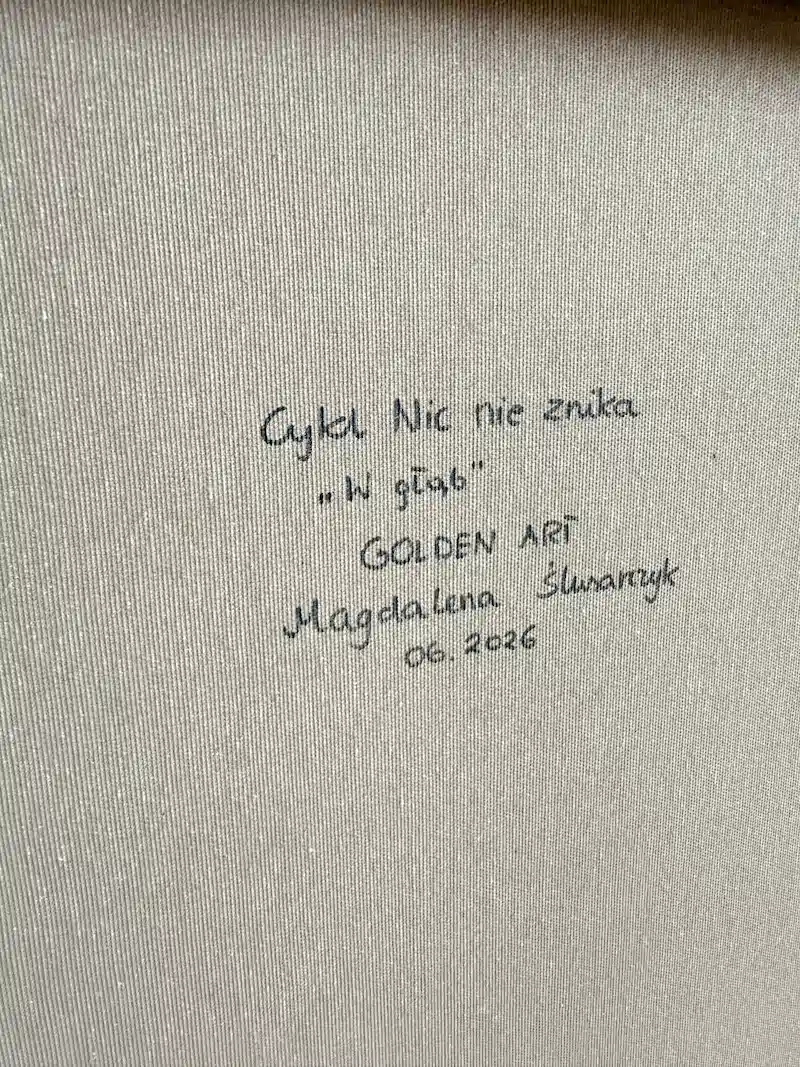 Cykl Nic nie znika
„W głąb"
GOLDEN ART
Magdalena Ślusarczyk
06.2026